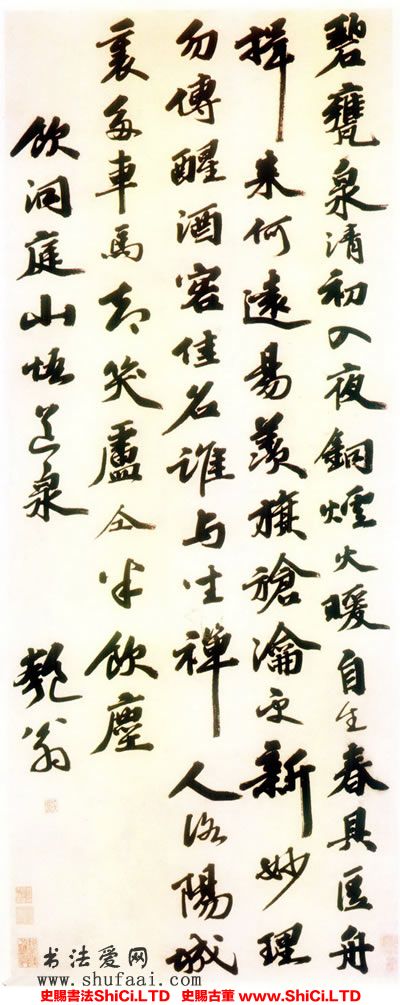 碧甕泉清初入夜銅爐火暖自生春具區舟
楫来何遠昜羨旗槍瀹更新妙理
勿傳醒酒客佳名誰与坐禪人洛陽城
裏多車馬却笑盧仝半飲塵
飲洞庭山悟道泉
匏翁
书法爱网
www.shufaai.com
史賜書法ShiCi.LTD 史賜古董 www.ShiCi.LTD